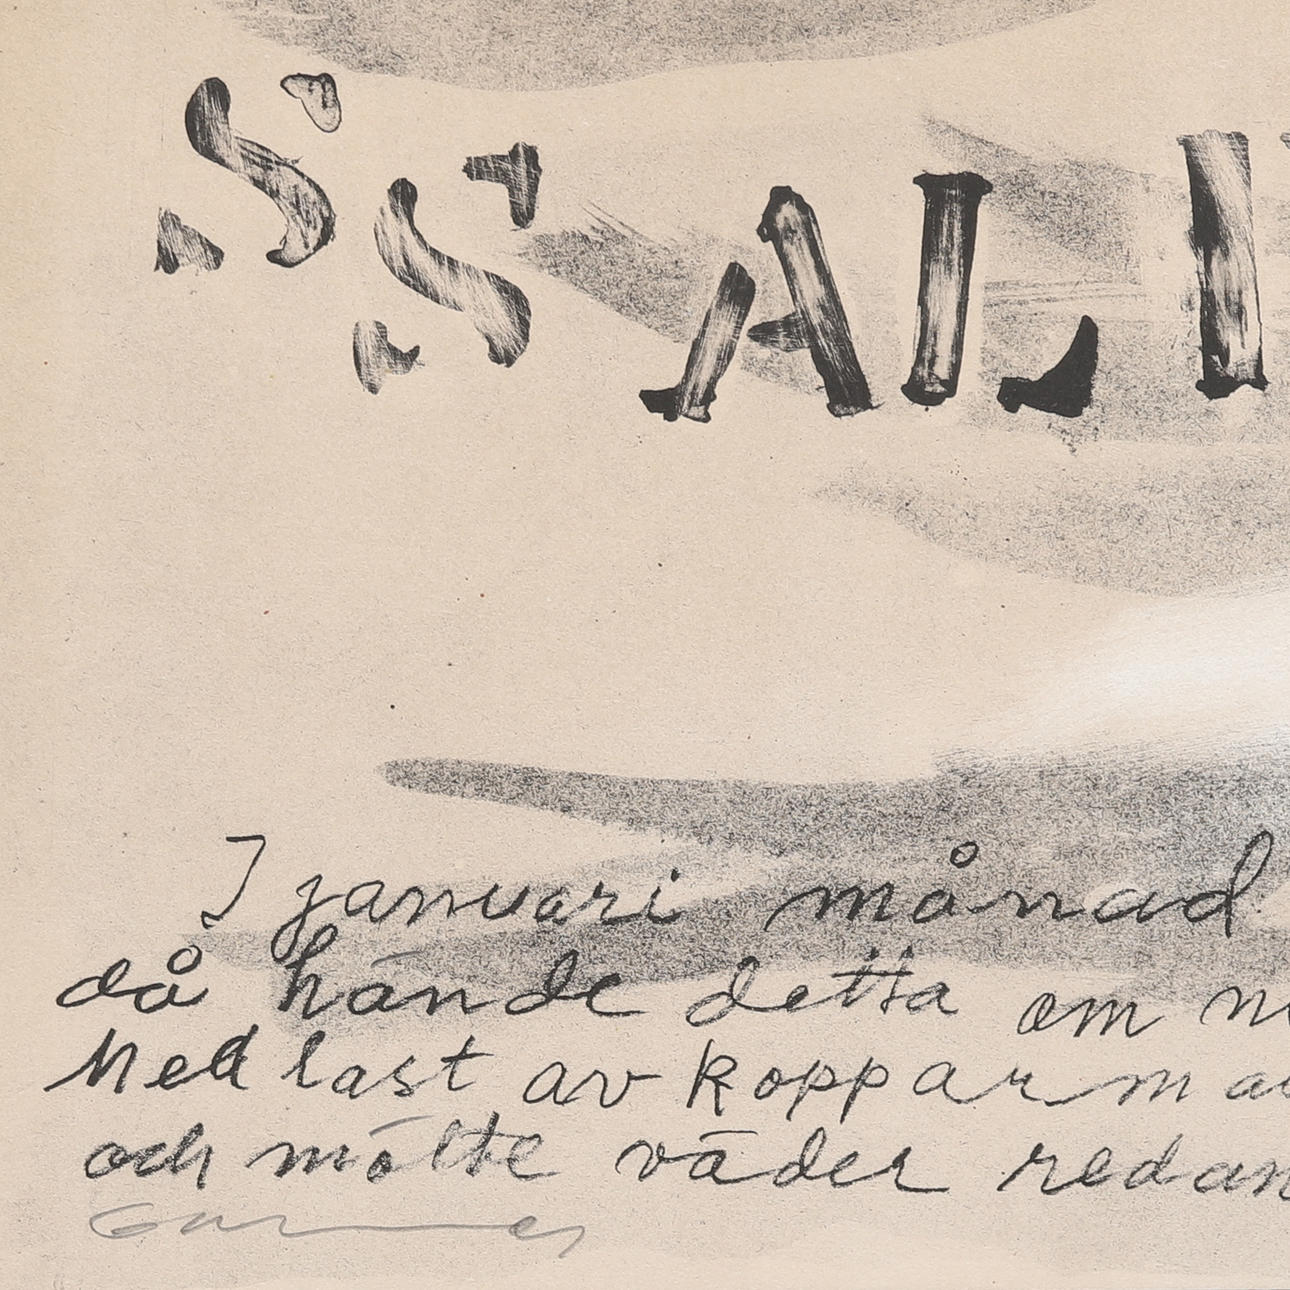 SS ALI
I januari månad
då hände detta om
Med last av koppar
och mötte väder redan